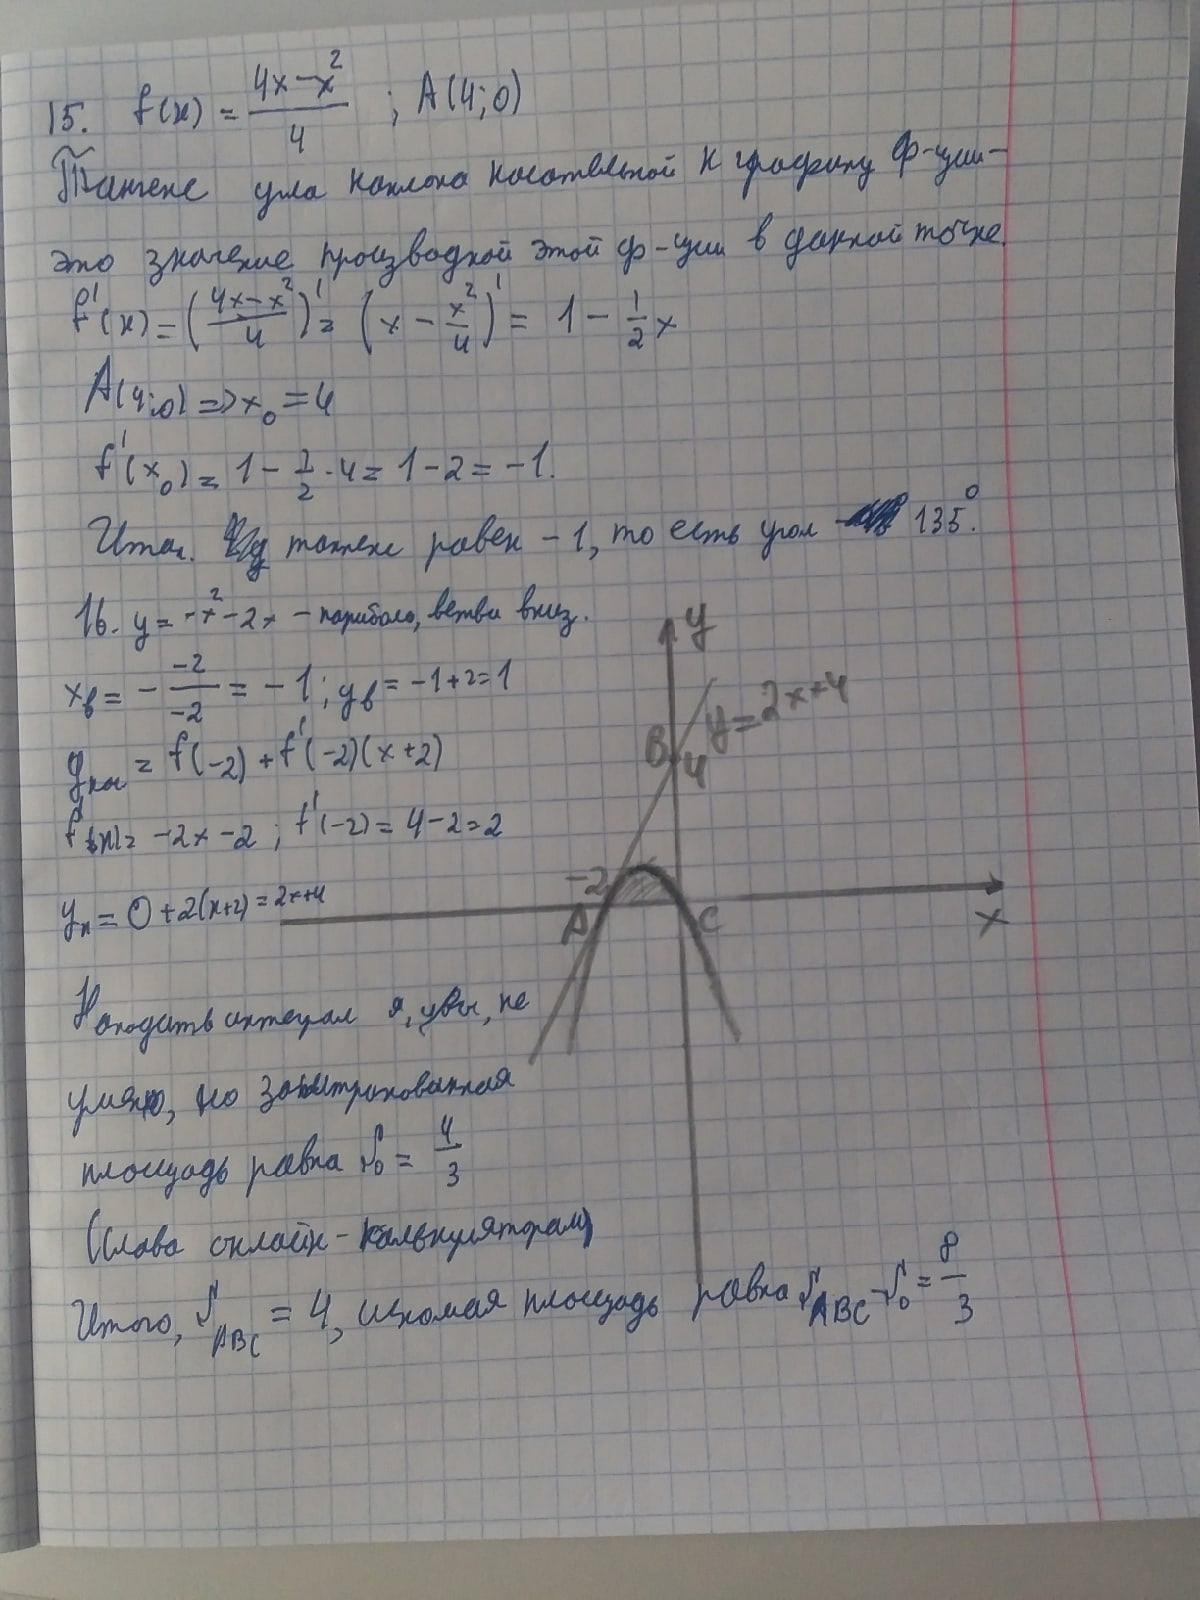 15. f(x) = (4x - x²)/4 ; A(4;0)
Тангенс угла наклона касательной к графику ф-ции -
это значение производной этой ф-ции в данной точке.
f'(x) = ((4x - x²)/4)' = (x - x²/4)' = 1 - 1/2 x
A(4;0) => x₀ = 4
f'(x₀) = 1 - 1/2 · 4 = 1 - 2 = -1.
Итак. тангенс равен -1, то есть угол 135°.
16. y = -x² - 2x - парабола, ветви вниз.
xв = - -2/-2 = -1; yв = -1+2=1
yкас = f(-2) + f'(-2)(x+2)
f'(x) = -2x - 2 ; f'(-2) = 4-2=2
yк = 0+2(x+2) = 2x+4
y
y=2x+4
B
4
-2
A
C
x
Находить интеграл я, увы, не
умею, но заштрихованная
площадь равна S₀ = 4/3
(Слава онлайн-калькуляторам)
Итого, S ABC = 4, искомая площадь равна S ABC - S₀ = 8/3